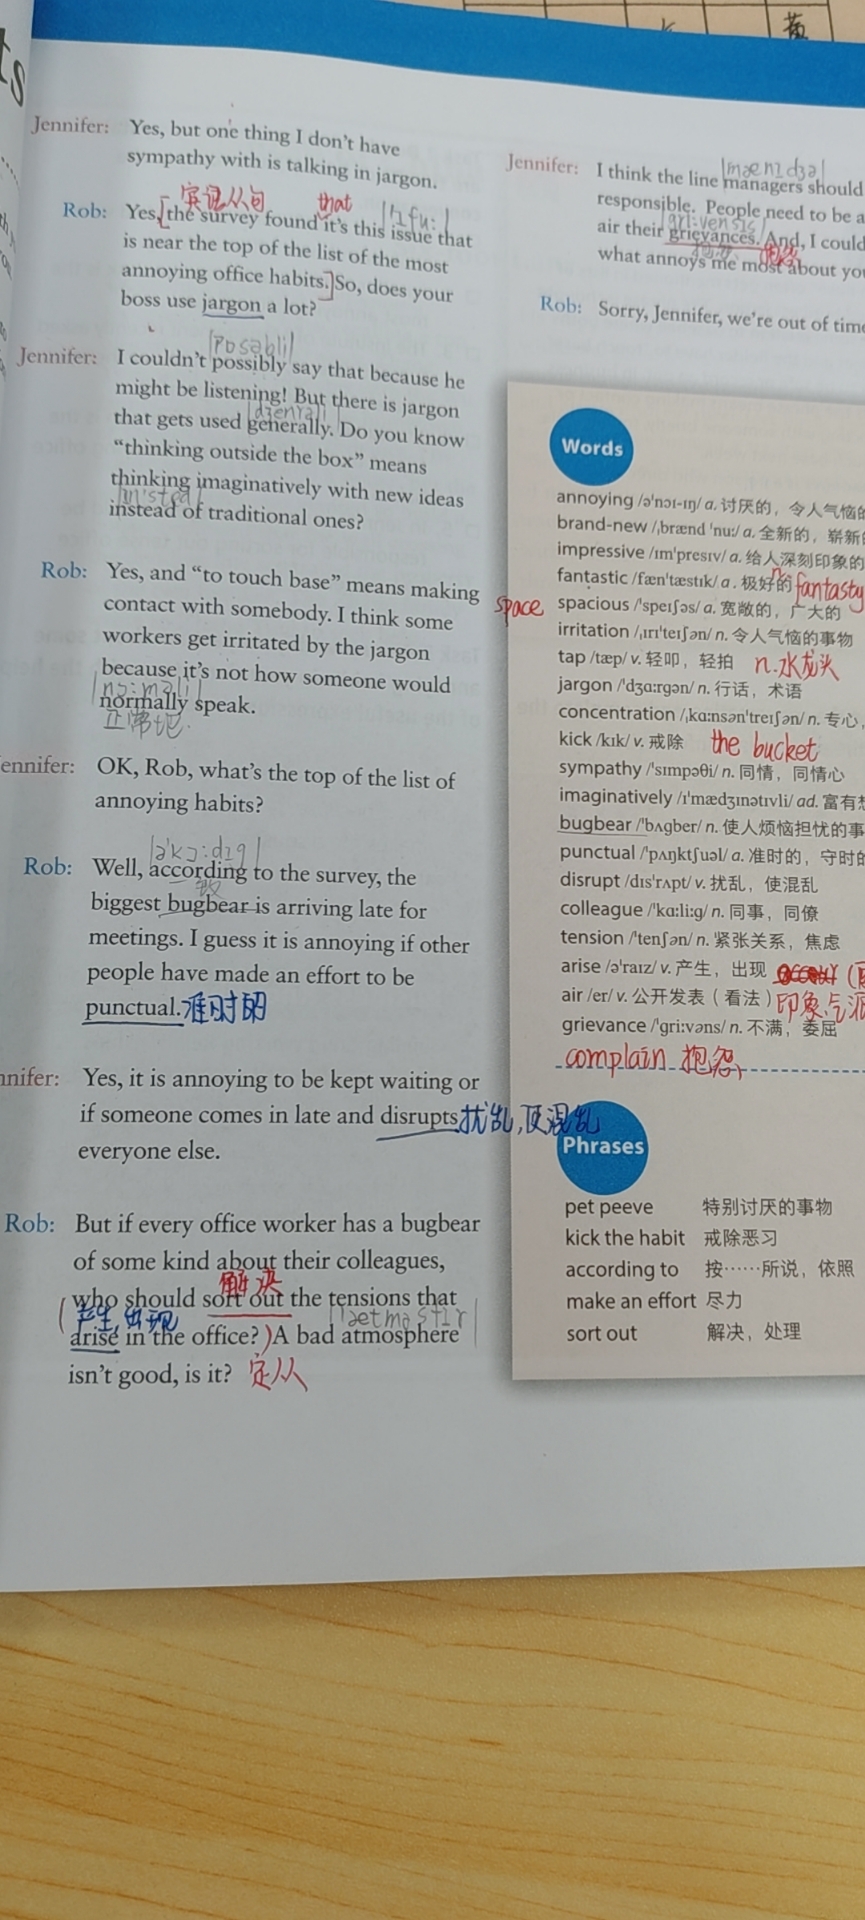 Jennifer: Yes, but one thing I don't have
sympathy with is talking in jargon.
宾语从句 that
Rob: Yes, [the survey found it's this issue that
is near the top of the list of the most
annoying office habits.] So, does your
boss use jargon a lot?
Jennifer: I couldn't possibly say that because he
might be listening! But there is jargon
that gets used generally. Do you know
“thinking outside the box” means
thinking imaginatively with new ideas
instead of traditional ones?
Rob: Yes, and “to touch base” means making
contact with somebody. I think some
workers get irritated by the jargon
because it's not how someone would
normally speak.
正常地
ennifer: OK, Rob, what's the top of the list of
annoying habits?
Rob: Well, according to the survey, the
biggest bugbear is arriving late for
meetings. I guess it is annoying if other
people have made an effort to be
punctual. 准时的
nnifer: Yes, it is annoying to be kept waiting or
if someone comes in late and disrupts 扰乱,使混乱
everyone else.
Rob: But if every office worker has a bugbear
of some kind about their colleagues,
解决
(who should sort out the tensions that
产生,出现
arise in the office?) A bad atmosphere
isn't good, is it? 定从
Jennifer: I think the line managers should
responsible. People need to be a
air their grievances. And, I could
抱怨
what annoys me most about you
Rob: Sorry, Jennifer, we're out of time
Words
annoying /ə'nɔɪ-ɪŋ/ a. 讨厌的，令人气恼的
brand-new /ˌbrænd 'nu:/ a. 全新的，崭新的
impressive /ɪm'presɪv/ a. 给人深刻印象的
fantastic /fæn'tæstɪk/ a. 极好的 n. fantasy
space spacious /'speɪʃəs/ a. 宽敞的，广大的
irritation /ˌɪrɪ'teɪʃən/ n. 令人气恼的事物
tap /tæp/ v. 轻叩，轻拍 n.水龙头
jargon /'dʒɑ:rgən/ n. 行话，术语
concentration /ˌkɑ:nsən'treɪʃən/ n. 专心，
kick /kɪk/ v. 戒除 the bucket
sympathy /'sɪmpəθi/ n. 同情，同情心
imaginatively /ɪ'mædʒɪnətɪvli/ ad. 富有想
bugbear /'bʌgber/ n. 使人烦恼担忧的事
punctual /'pʌŋktʃuəl/ a. 准时的，守时的
disrupt /dɪs'rʌpt/ v. 扰乱，使混乱
colleague /'kɑ:li:g/ n. 同事，同僚
tension /'tenʃən/ n. 紧张关系，焦虑
arise /ə'raɪz/ v. 产生，出现
air /er/ v. 公开发表（看法）印象,气派
grievance /'gri:vəns/ n. 不满，委屈
complain 抱怨
Phrases
pet peeve 特别讨厌的事物
kick the habit 戒除恶习
according to 按……所说，依照
make an effort 尽力
sort out 解决，处理